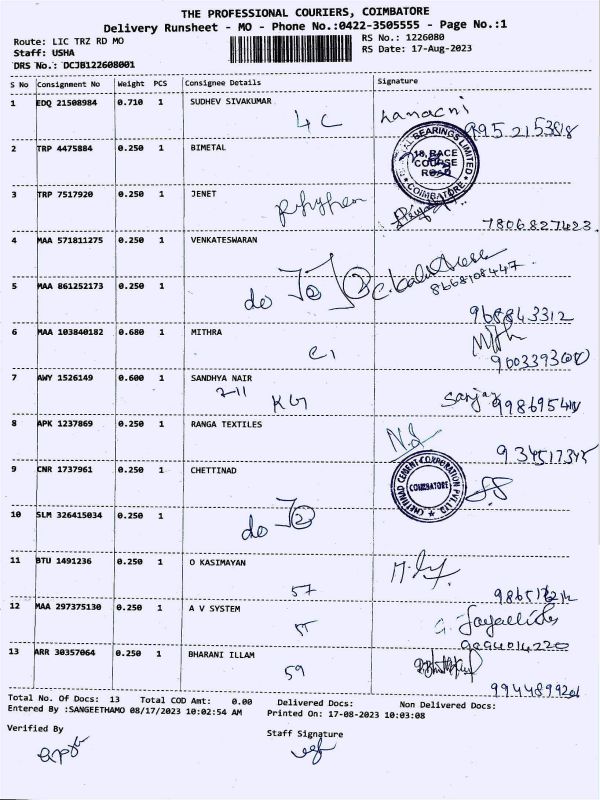 THE PROFESSIONAL COURIERS, COIMBATORE
Delivery Runsheet - MO - Phone No.:0422-3505555 - Page No.:1
Route: LIC TRZ RD MO
RS No.: 1226080
Staff: USHA
RS Date: 17-Aug-2023
DRS No.: DCJB122608001
S No Consignment No Weight PCS Consignee Details Signature
1 EDQ 21508984 0.710 1 SUDHEV SIVAKUMAR
4C
2 TRP 4475884 0.250 1 BIMETAL
BEARINGS LIMITED
18, RACE
COURSE
ROAD
COIMBATORE
3 TRP 7517920 0.250 1 JENET
7806827423
4 MAA 571811275 0.250 1 VENKATESWARAN
5 MAA 861252173 0.250 1
do
8668108447
968843312
6 MAA 103840182 0.680 1 MITHRA
C1
7 AWY 1526149 0.600 1 SANDHYA NAIR
KG
8 APK 1237869 0.250 1 RANGA TEXTILES
9 CNR 1737961 0.250 1 CHETTINAD
CHETTINAD CEMENT CORPORATION PVT. LTD.
COIMBATORE
10 SLM 326415034 0.250 1
do
11 BTU 1491236 0.250 1 O KASIMAYAN
57
12 MAA 297375130 0.250 1 A V SYSTEM
9094014220
13 ARR 30357064 0.250 1 BHARANI ILLAM
59
Total No. Of Docs: 13 Total COD Amt: 0.00 Delivered Docs: Non Delivered Docs:
Entered By :SANGEETHAMO 08/17/2023 10:02:54 AM Printed On: 17-08-2023 10:03:08
Verified By
Staff Signature